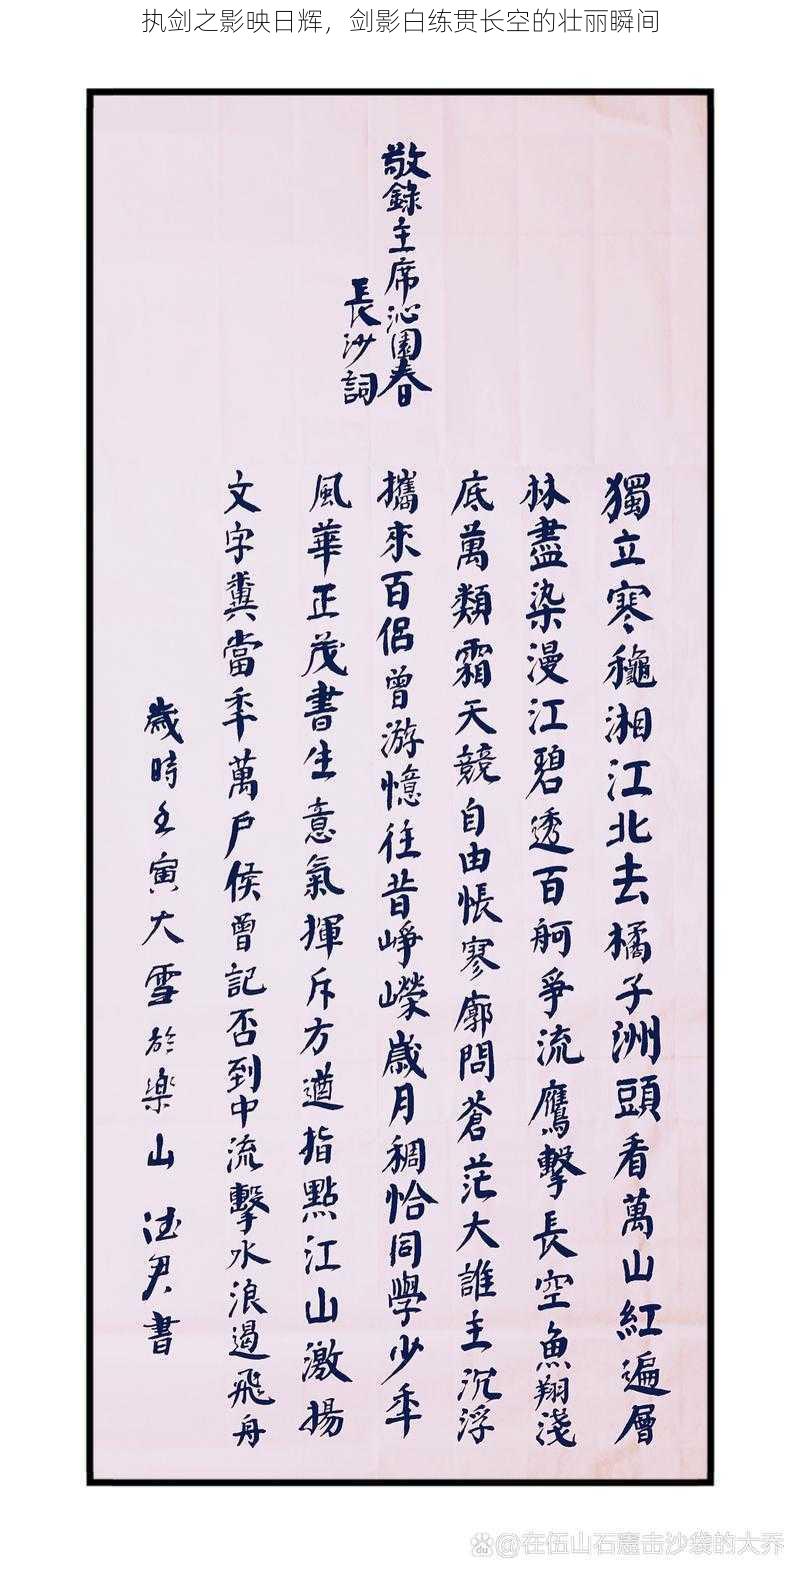 执剑之影映日辉，剑影白练贯长空的壮丽瞬间
敬錄主席沁園春
長沙詞
獨立寒龝湘江北去橘子洲頭看萬山紅遍層
林盡染漫江碧透百舸爭流鷹擊長空魚翔淺
底萬類霜天競自由悵寥廓問蒼茫大誰主沉浮
攜來百侶曾游憶往昔崢嶸歲月稠恰同學少年
風華正茂書生意氣揮斥方遒指點江山激揚
文字糞當年萬戶侯曾記否到中流擊水浪遏飛舟
歲時壬寅大雪於樂山 君書
@在伍山石击沙袋的大乔